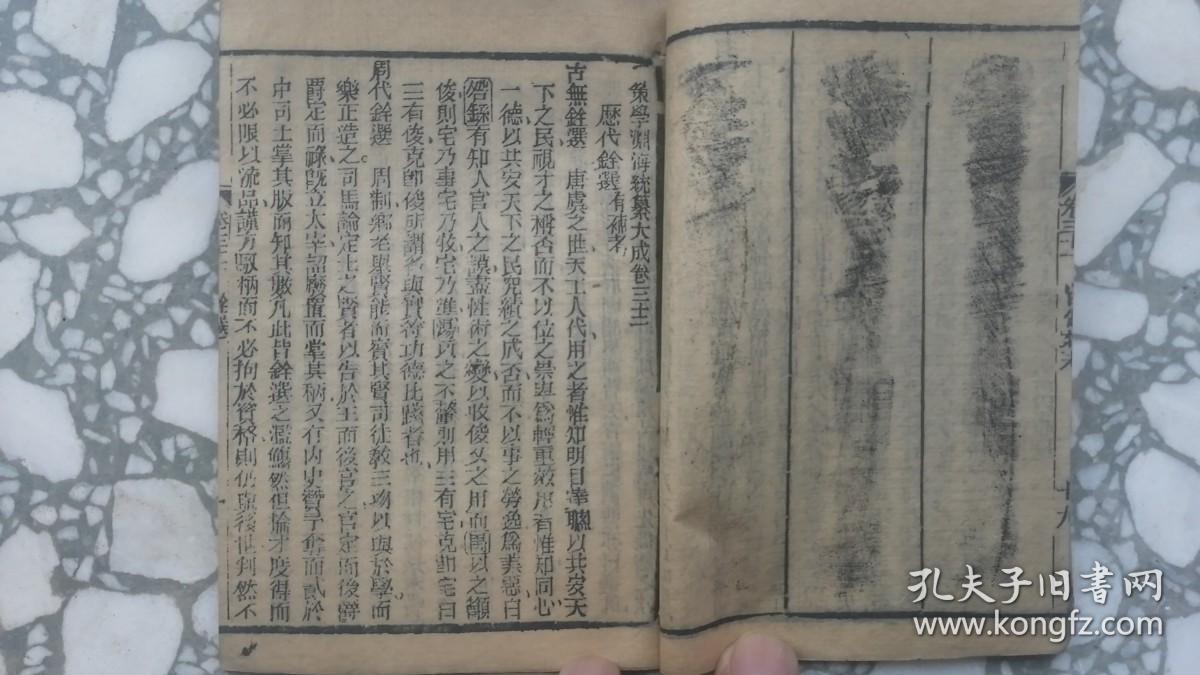 策學淵海統纂大成卷三十二
歷代銓選 有補考
古無銓選 唐虞之世天工人代用之者惟知明目達聰以共安天
下之民視才之稱否而不以位之崇卑為輕重效用者惟知同心
一德以共安天下之民究績之成否而不以事之勞逸為美惡曰
咎繇有知人官人之謨盡性術之變以收俊乂之用而周以之籲
俊則宅乃事宅乃牧宅乃準湯以之不釐則用三有宅克即宅曰
三有俊克即俊所謂名與實符功德比踐者也
周代銓選 周制鄉老與賢能而賓其賢司徒教三物以興於學而
樂正造之司馬論定士之賢者以告於王而後官之官定而後爵
爵定而祿既立太宰詔廢置而掌其柄又有內史贊予奪而貳於
中司士掌其版而知其數凡此皆銓選之濫觴然但掄才度得而
不必限以流品謹方馭柄而不必拘於資格則仍與後世判然不
卷三十二
十九
孔夫子旧书网
www.kongfz.com